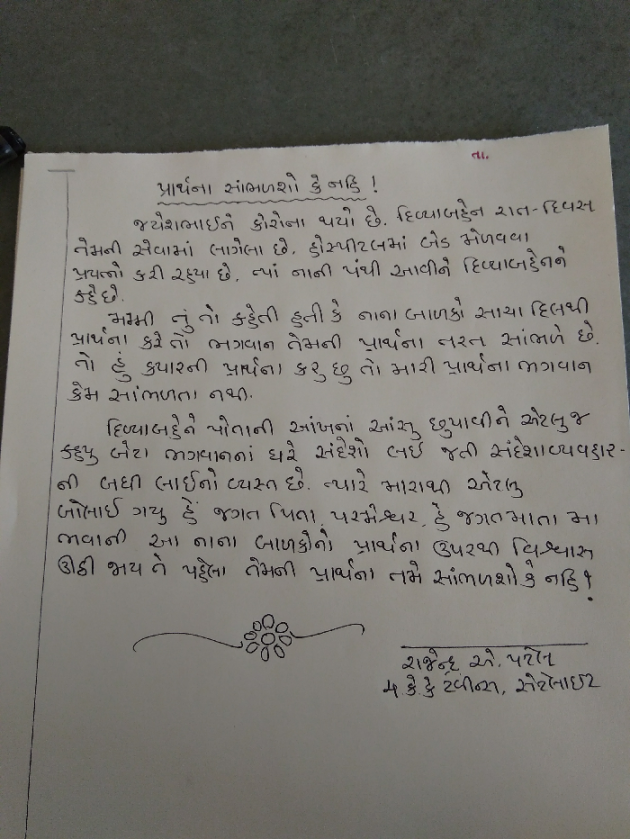 તા.
પ્રાર્થના સાંભળશો કે નહિ !
જયેશભાઈને કોરોના થયો છે. દિવ્યાબહેન રાત-દિવસ
તેમની સેવામાં લાગેલા છે. હોસ્પીટલમાં બેડ મેળવવા
પ્રયત્નો કરી રહ્યા છે, ત્યાં નાની પંથી આવીને દિવ્યાબહેનને
કહે છે.
મમ્મી તું તો કહેતી હતી કે નાના બાળકો સાચા દિલથી
પ્રાર્થના કરે તો ભગવાન તેમની પ્રાર્થના તરત સાંભળે છે.
તો હું કયારની પ્રાર્થના કરુ છુ તો મારી પ્રાર્થના ભગવાન
કેમ સાંભળતા નથી.
દિવ્યાબહેને પોતાની આંખનાં આંસુ છુપાવીને એટલુ જ
કહ્યુ બેટા ભગવાનનાં ઘરે સંદેશો લઈ જતી સંદેશાવ્યવહાર-
ની બધી લાઈનો વ્યસ્ત છે. ત્યારે મારાથી એટલુ
બોલાઈ ગયુ હે જગત પિતા, પરમેશ્વર, હે જગતમાતા મા
ભવાની આ નાના બાળકોનો પ્રાર્થના ઉપરથી વિશ્વાસ
ઊઠી જાય તે પહેલા તેમની પ્રાર્થના તમે સાંભળશો કે નહિ !
રાજેન્દ્ર એ. પટેલ
કે. કે ટ્વીન્સ, સેટેલાઈટ